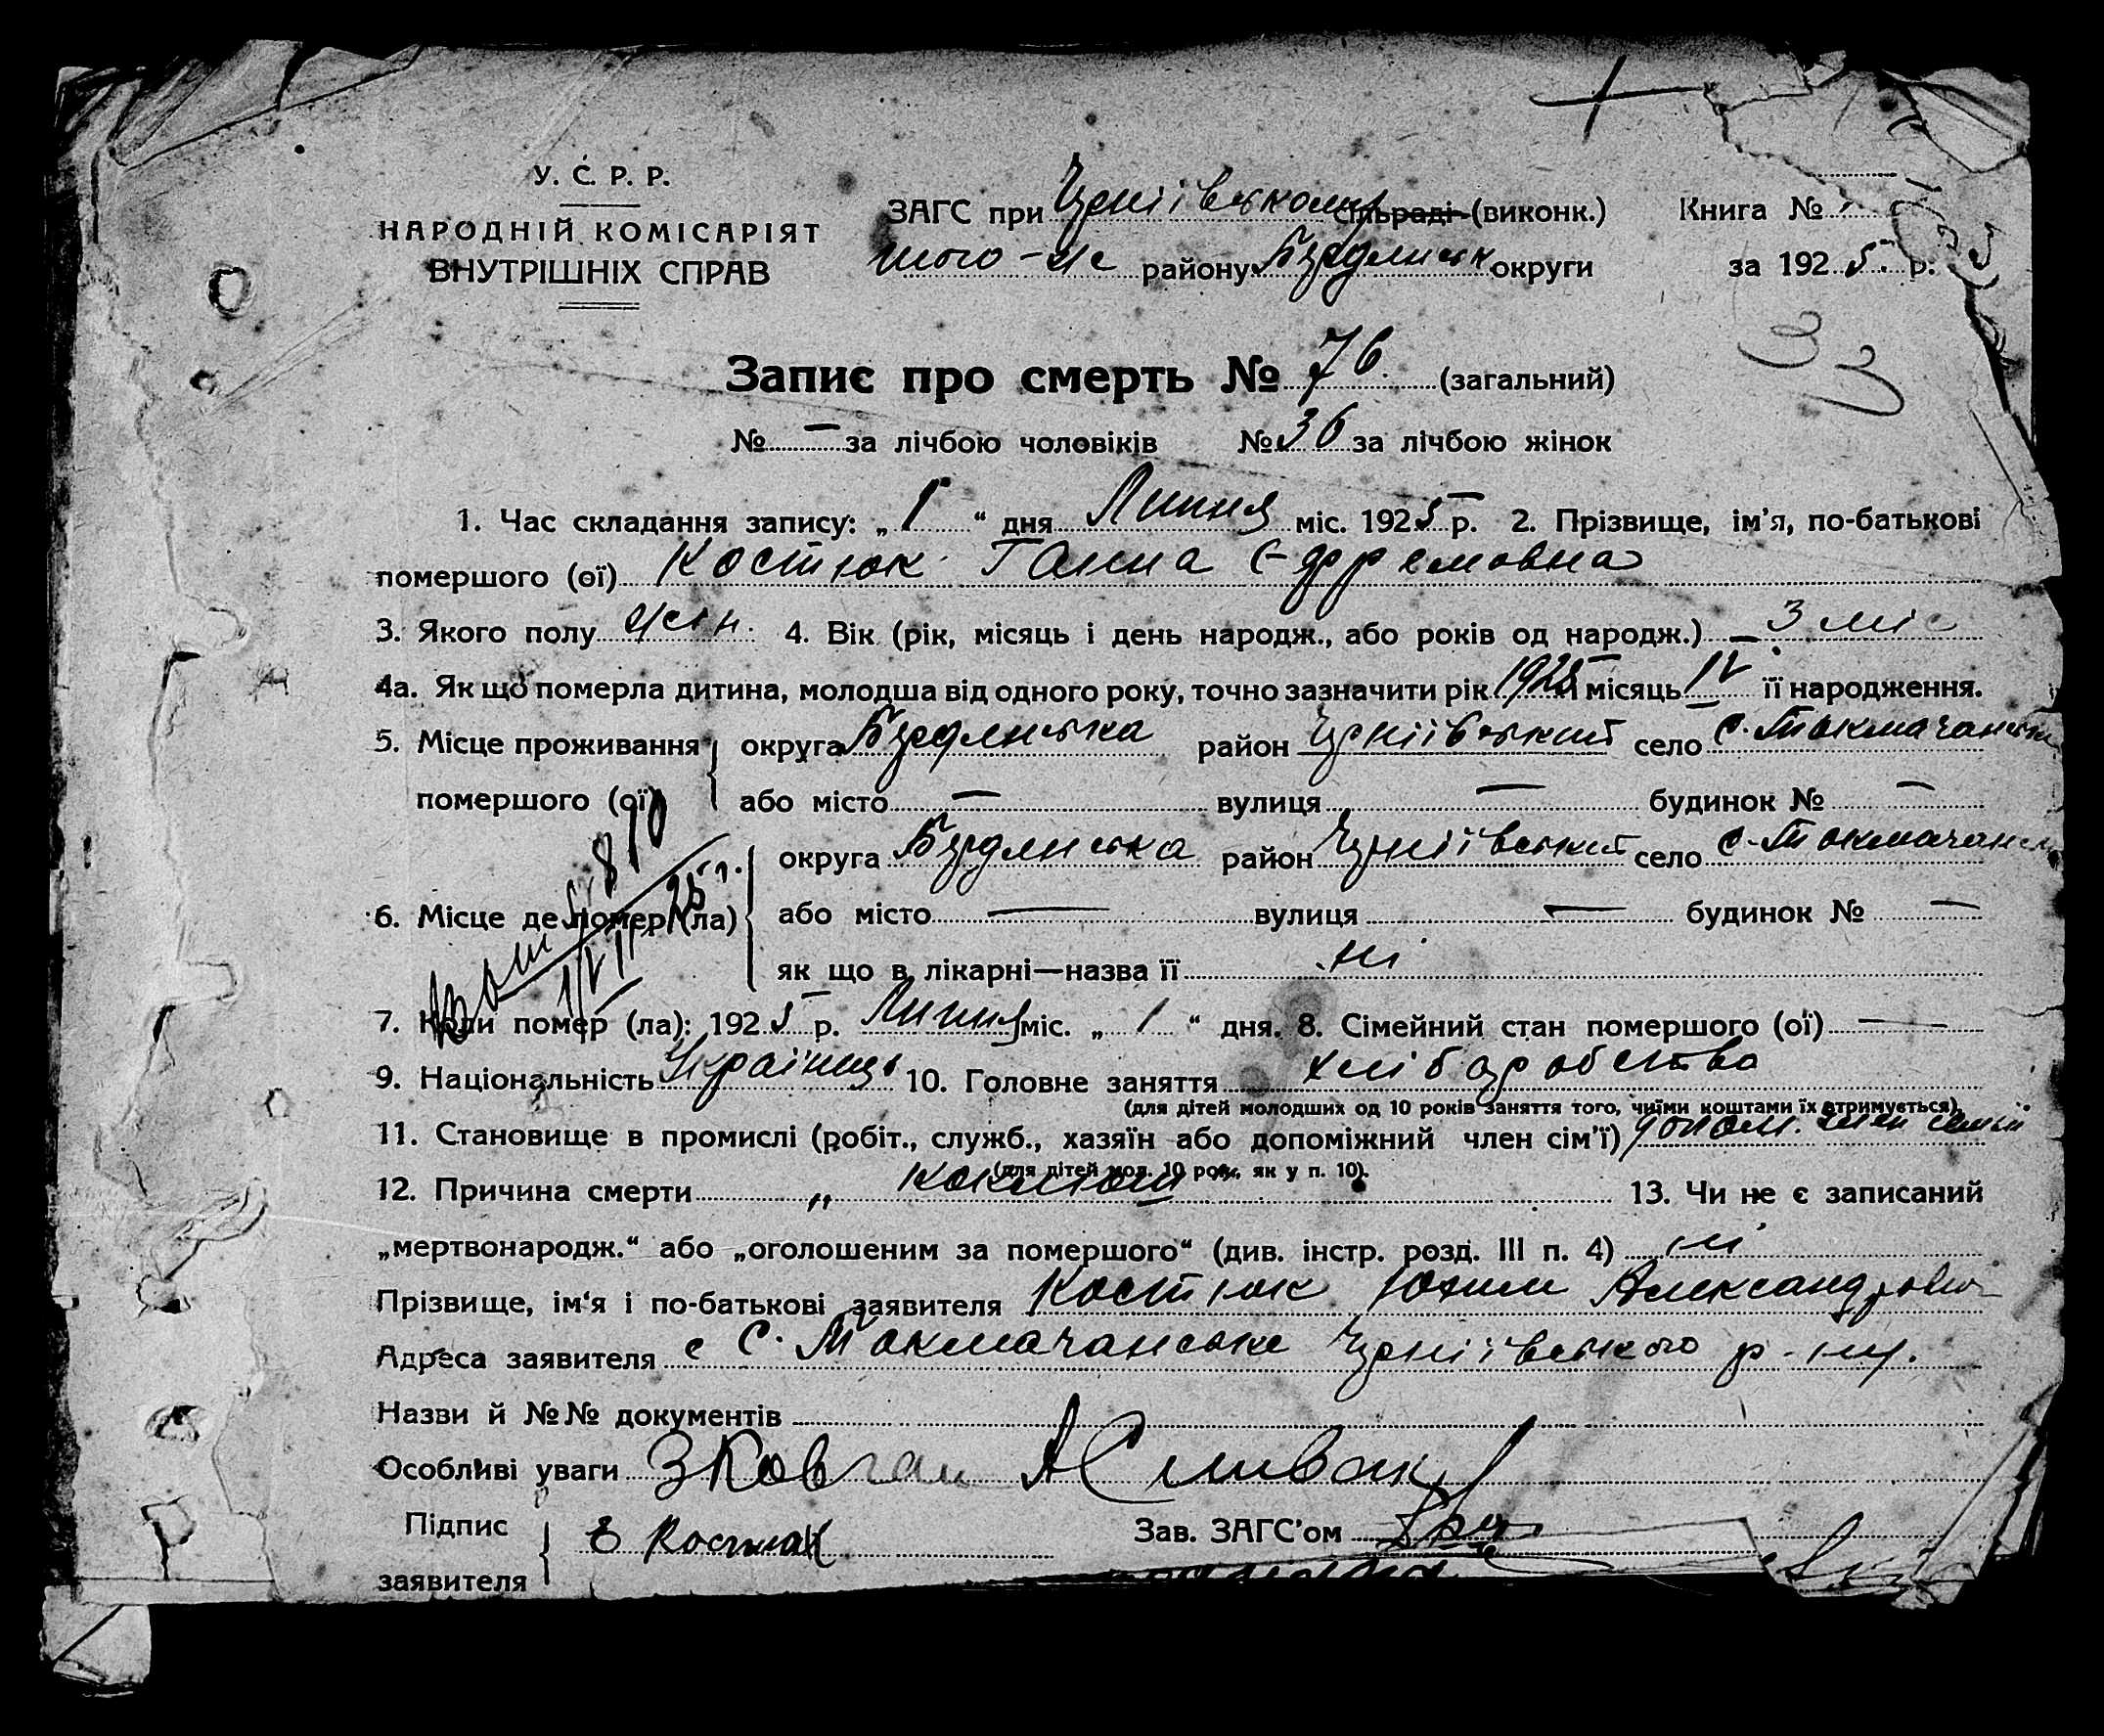 У. С. Р. Р.
НАРОДНІЙ КОМІСАРІЯТ
ВНУТРІШНІХ СПРАВ
ЗАГС при сільраді (виконк.)
району округи
Книга №
за 1925 р.
33
Запис про смерть № 76 (загальний)
№ — за лічбою чоловіків № 36 за лічбою жінок
1. Час складання запису: „ 1 “ дня Липня міс. 1925 р. 2. Прізвище, ім’я, по-батькові
помершого (ої) Костюк Ганна Єфремовна
3. Якого полу жін. 4. Вік (рік, місяць і день народж., або років од народж.) — 3 міс
4а. Як що померла дитина, молодша від одного року, точно зазначити рік 1925 місяць IV її народження.
5. Місце проживання округа Бердянська район село С. Токмачанськ
помершого (ої) або місто — вулиця — будинок № —
округа Бердянська район село С. Токмачанськ
6. Місце де помер (ла) або місто — вулиця — будинок № —
як що в лікарні—назва її ні
7. Коли помер (ла): 1925 р. Липня міс. „ 1 “ дня. 8. Сімейний стан помершого (ої) —
9. Національність Українць 10. Головне заняття хліборобство
(для дітей молодших од 10 років заняття того, чиїми коштами їх втримується).
11. Становище в промислі (робіт., служб., хазяїн або допоміжний член сім’ї) допом. член семьї
(для дітей мол. 10 рок., як у п. 10).
12. Причина смерти „ коклюш 13. Чи не є записаний
„мертвонародж.“ або „оголошеним за помершого“ (див. інстр. розд. III п. 4) ні
Прізвище, ім‘я і по-батькові заявителя Костюк Юхим Александрович
Адреса заявителя с С. Токмачанське р-ну.
Назви й №№ документів
Особливі уваги
Підпис
заявителя Е Костюк
Зав. ЗАГС’ом